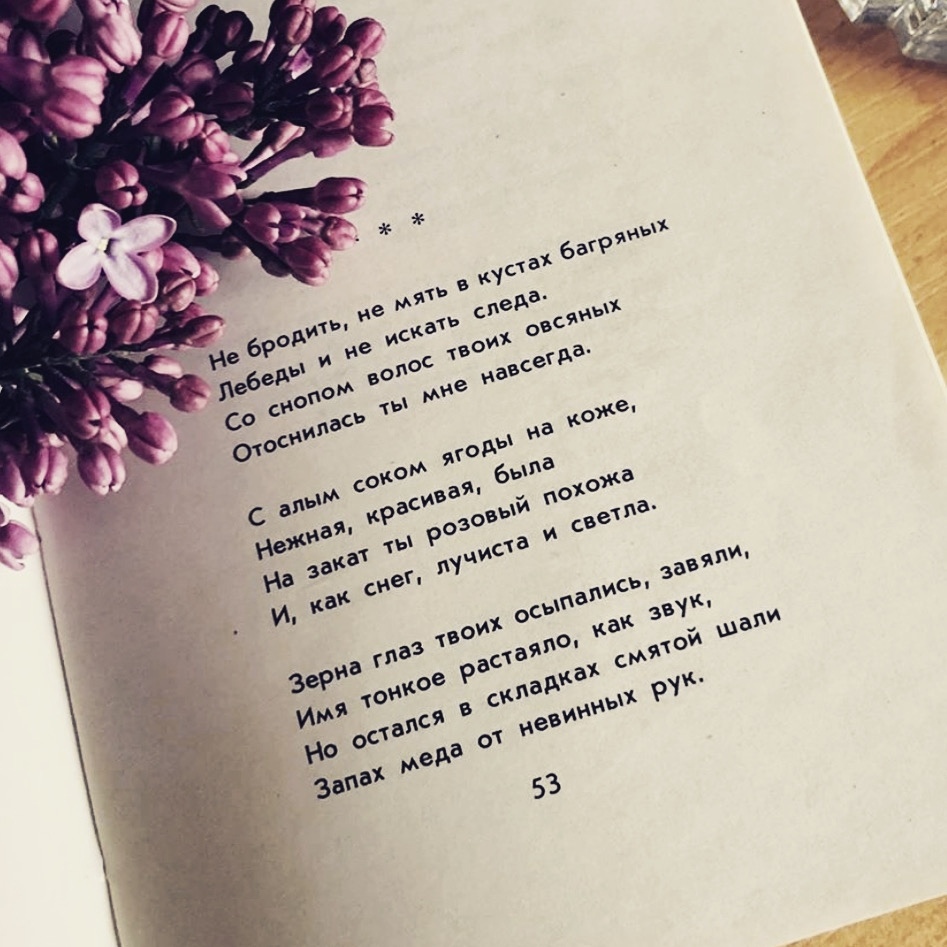 * *
Не бродить, не мять в кустах багряных
Лебеды и не искать следа.
Со снопом волос твоих овсяных
Отоснилась ты мне навсегда.
С алым соком ягоды на коже,
Нежная, красивая, была
На закат ты розовый похожа
И, как снег, лучиста и светла.
Зерна глаз твоих осыпались, завяли,
Имя тонкое растаяло, как звук,
Но остался в складках смятой шали
Запах меда от невинных рук.
53